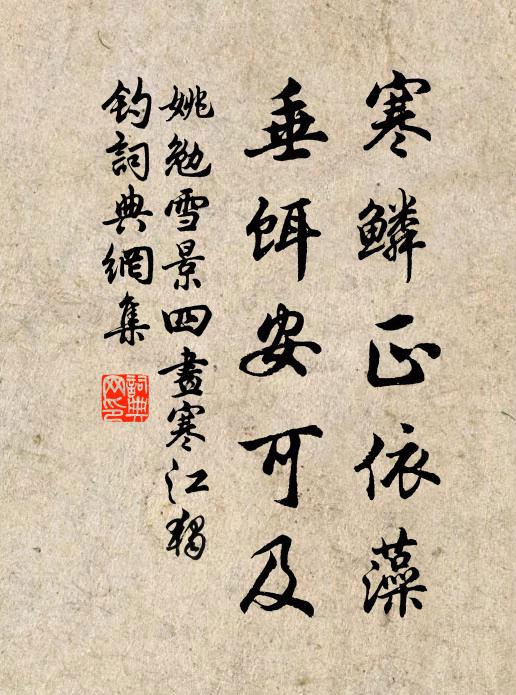 寒鳞正依藻
垂饵安可及
姚勉雪景四畫寒江獨
釣詞典網集
詞典网印